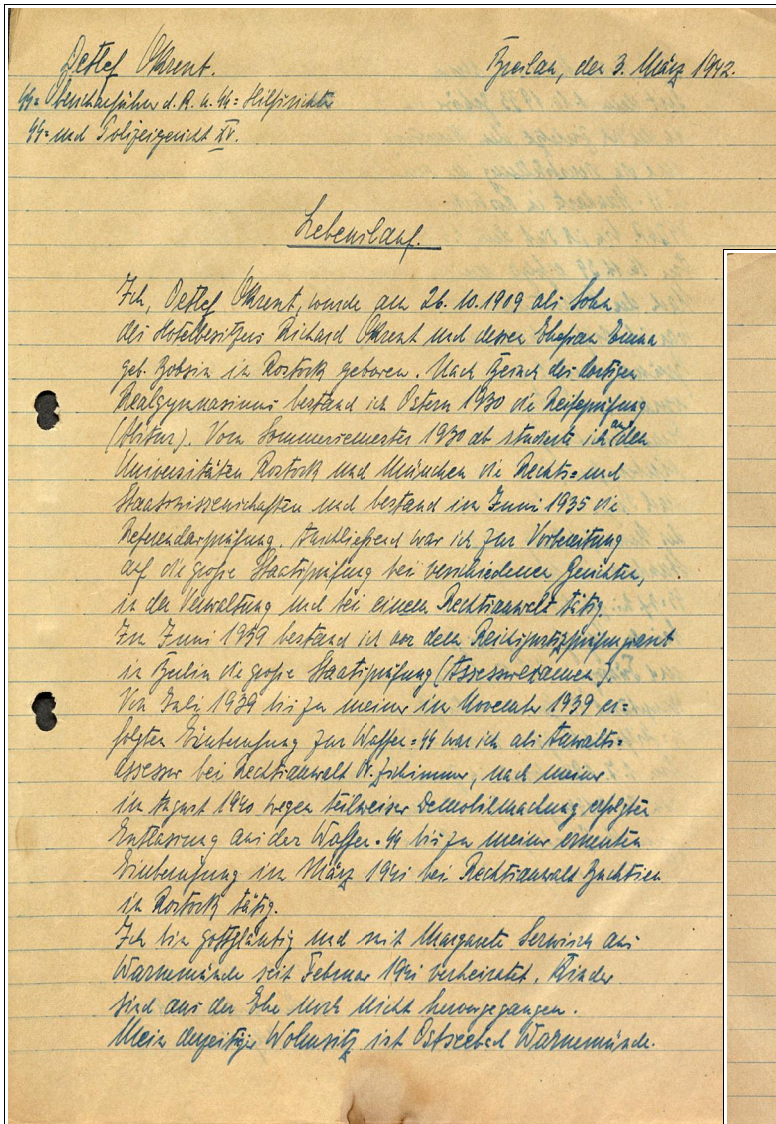 Detlef Ohrent.
Breslau, den 3. März 1942.
SS=Oberscharführer d. R. u. SS=Hilfsrichter
SS= und Polizeigericht XV.
Lebenslauf.
Ich, Detlef Ohrent, wurde am 26.10.1909 als Sohn
des Hotelbesitzers Richard Ohrent und dessen Ehefrau Emma
geb. in Rostock geboren. Nach Besuch des dortigen
Realgymnasiums bestand ich Ostern 1930 die Reifeprüfung
(Abitur). Vom Sommersemester 1930 ab studierte ich an den
Universitäten Rostock und München die Rechts= und
Staatswissenschaften und bestand im Juni 1935 die
Referendarprüfung. Anschließend war ich zur Vorbereitung
auf die große Staatsprüfung bei verschiedenen Gerichten,
in der Verwaltung und bei einem Rechtsanwalt tätig.
Im Juni 1939 bestand ich vor dem Reichsjustizprüfungsamt
in Berlin die große Staatsprüfung (Assessorexamen).
Von Juli 1939 bis zu meiner im November 1939 er=
folgten Einberufung zur Waffen=SS war ich als Anwalts=
assessor bei Rechtsanwalt Dr. Zschimmer, nach meiner
im August 1940 wegen teilweiser Demobilmachung erfolgten
Entlassung aus der Waffen-SS bis zu meiner erneuten
Einberufung im März 1941 bei Rechtsanwalt
in Rostock tätig.
Ich bin gottgläubig und mit Margarete Serwisch aus
Warnemünde seit Februar 1941 verheiratet. Kinder
sind aus der Ehe noch nicht hervorgegangen.
Mein derzeitiger Wohnsitz ist Ostseebad Warnemünde.